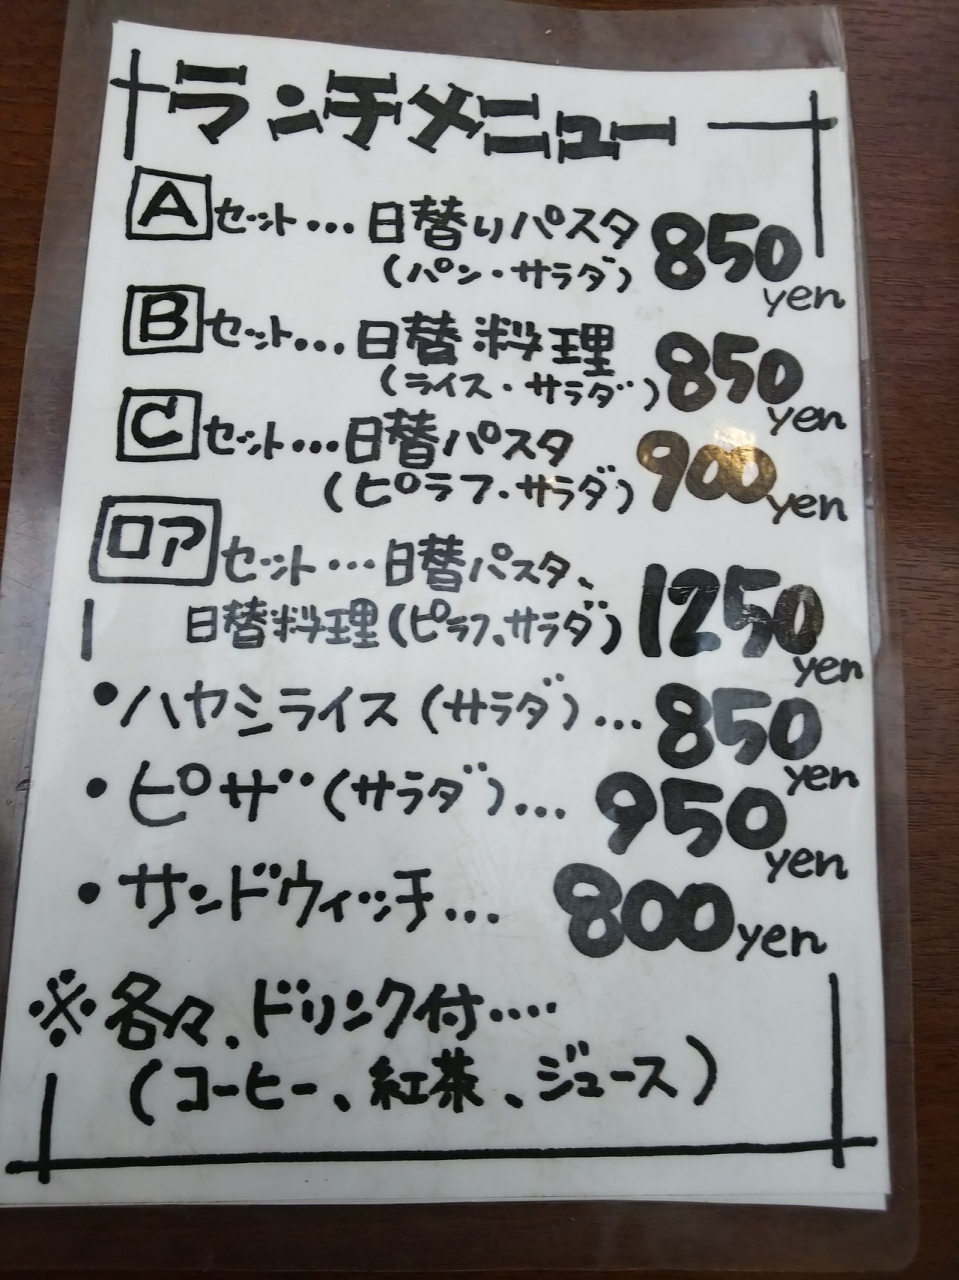 ランチメニュー
Aセット…日替りパスタ 850
(パン・サラダ) yen
Bセット…日替料理 850
(ライス・サラダ) yen
Cセット…日替パスタ 900
(ピラフ・サラダ) yen
ロアセット…日替パスタ、 1250
日替料理(ピラフ、サラダ) yen
・ハヤシライス(サラダ)…850 yen
・ピザ(サラダ)…950 yen
・サンドウィッチ…800yen
※各々、ドリンク付‥‥
(コーヒー、紅茶、ジュース)